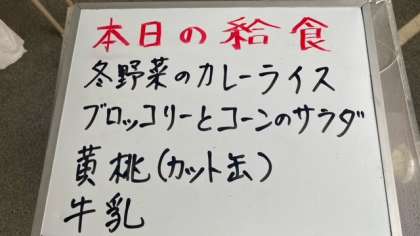 本日の給食
冬野菜のカレーライス
ブロッコリーとコーンのサラダ
黄桃(カット缶)
牛乳